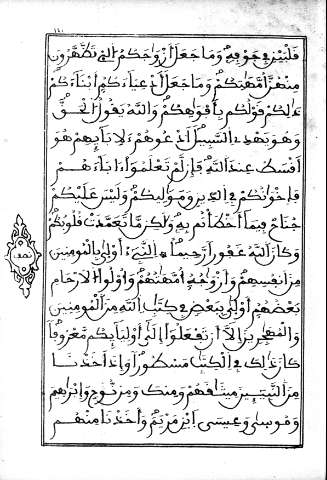 قلبين في جوفه وما جعل أزواجكم الئ تظهرون
منهن أمهتكم وما جعل أدعياءكم أبناءكم
ذلكم قولكم بأفواهكم والله يقول الحق
وهو يهدي السبيل ادعوهم لابائهم هو
أقسط عند الله فإن لم تعلموا ءاباءهم
فإخوانكم في الدين ومواليكم وليس عليكم
جناح فيما أخطأتم به ولكن ما تعمدت قلوبكم
وكان الله غفورا رحيما النبيء أولى بالمومنين
من أنفسهم وأزواجه أمهتهم وأولوا الارحام
بعضهم أولى ببعض في كتاب الله من المومنين
والمهجرين إلا أن تفعلوا إلى أوليائكم معروفا
كان ذلك في الكتاب مسطورا وإذ اخذنا
من النبيئين ميثاقهم ومنك ومن نوح وإبرهيم
وموسى وعيسى ابن مريم وأخذنا منهم